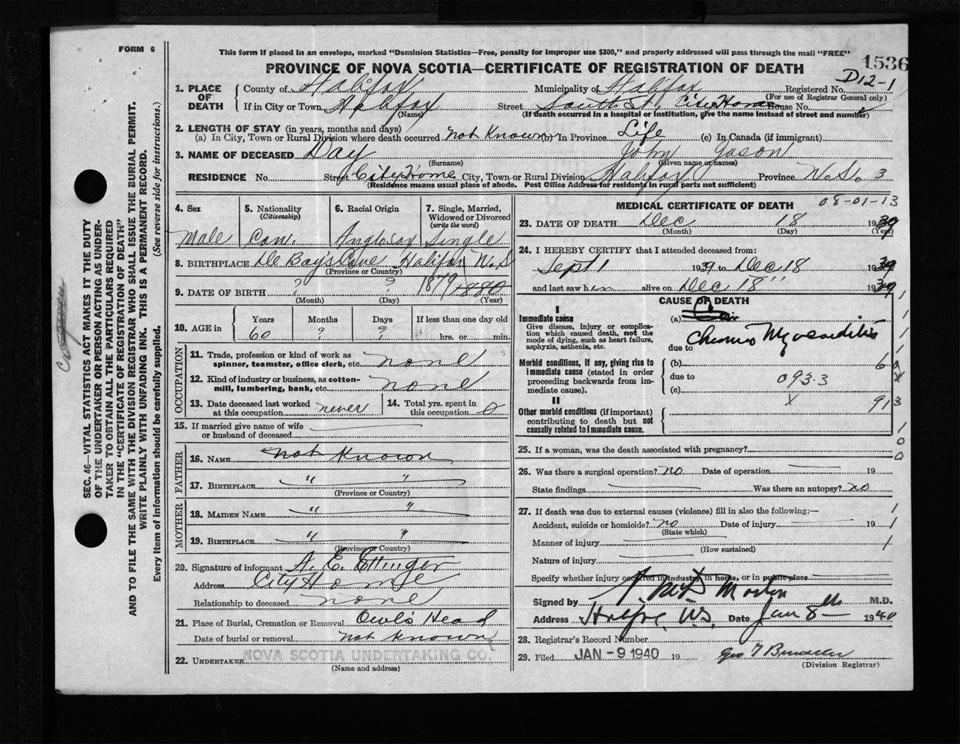 FORM 6
This form if placed in an envelope, marked "Dominion Statistics—Free, penalty for improper use $300," and properly addressed will pass through the mail "FREE"
1536
PROVINCE OF NOVA SCOTIA—CERTIFICATE OF REGISTRATION OF DEATH
D12-1
1. PLACE OF DEATH County of Halifax Municipality of Halifax Registered No.
(For use of Registrar General only)
If in City or Town Halifax Street South St, City Home House No.
(Name) (If death occurred in a hospital or institution, give the name instead of street and number)
2. LENGTH OF STAY (in years, months and days)
(a) In City, Town or Rural Division where death occurred not Known (b) In Province Life (c) In Canada (if immigrant)
3. NAME OF DECEASED Day John Jason
(Surname) (Given name or names)
RESIDENCE No. Street City Home City, Town or Rural Division Halifax Province N.S. 3
(Residence means usual place of abode. Post Office Address for residents in rural parts not sufficient)
4. Sex 5. Nationality (Citizenship) 6. Racial Origin 7. Single, Married, Widowed or Divorced (write the word)
Male Can. Anglosax Single
8. BIRTHPLACE De Bays Cove Halifax N.S
(Province or Country)
9. DATE OF BIRTH ? ? 1879 1880
(Month) (Day) (Year)
10. AGE in Years Months Days If less than one day old
60 ? ? hrs. or min.
OCCUPATION
11. Trade, profession or kind of work as spinner, teamster, office clerk, etc. none
12. Kind of industry or business, as cotton-mill, lumbering, bank, etc. none
13. Date deceased last worked at this occupation never 14. Total yrs. spent in this occupation 0
15. If married give name of wife or husband of deceased
FATHER
16. NAME not Known
17. BIRTHPLACE " "
(Province or Country)
MOTHER
18. MAIDEN NAME " "
19. BIRTHPLACE " "
(Province or Country)
20. Signature of informant A. E. Ettinger
Address City Home
Relationship to deceased none
21. Place of Burial, Cremation or Removal Owl's Head
Date of burial or removal not Known
22. UNDERTAKER NOVA SCOTIA UNDERTAKING CO.
(Name and address)
MEDICAL CERTIFICATE OF DEATH
08-01-13
23. DATE OF DEATH Dec 18 1939
(Month) (Day) (Year)
24. I HEREBY CERTIFY that I attended deceased from:
Sept 1 1939 to Dec 18 1939
and last saw him alive on Dec 18" 1939
CAUSE OF DEATH
I
Immediate cause (a)
Give disease, injury or complication which caused death, not the mode of dying, such as heart failure, asphyxia, asthenia, etc.
Chronic Myocarditis
due to
Morbid conditions, if any, giving rise to immediate cause (stated in order proceeding backwards from immediate cause).
(b)
due to 093.3
(c)
II
Other morbid conditions (if important) contributing to death but not causally related to immediate cause.
x 913
25. If a woman, was the death associated with pregnancy?
26. Was there a surgical operation? no Date of operation 19
State findings Was there an autopsy? no
27. If death was due to external causes (violence) fill in also the following:—
Accident, suicide or homicide? no Date of injury 19
(State which)
Manner of injury
(How sustained)
Nature of injury
Specify whether injury occurred in industry, in home, or in public place
Signed by Morton M.D.
Address Halifax, N.S. Date Jan 8th 1940
28. Registrar's Record Number
29. Filed JAN -9 1940 19
(Division Registrar)
SEC. 46—VITAL STATISTICS ACT MAKES IT THE DUTY
OF THE UNDERTAKER OR PERSON ACTING AS UNDER-
TAKER TO OBTAIN ALL THE PARTICULARS REQUIRED
IN THE "CERTIFICATE OF REGISTRATION OF DEATH"
AND TO FILE THE SAME WITH THE DIVISION REGISTRAR WHO SHALL ISSUE THE BURIAL PERMIT.
WRITE PLAINLY WITH UNFADING INK. THIS IS A PERMANENT RECORD.
Every item of information should be carefully supplied. (See reverse side for instructions.)